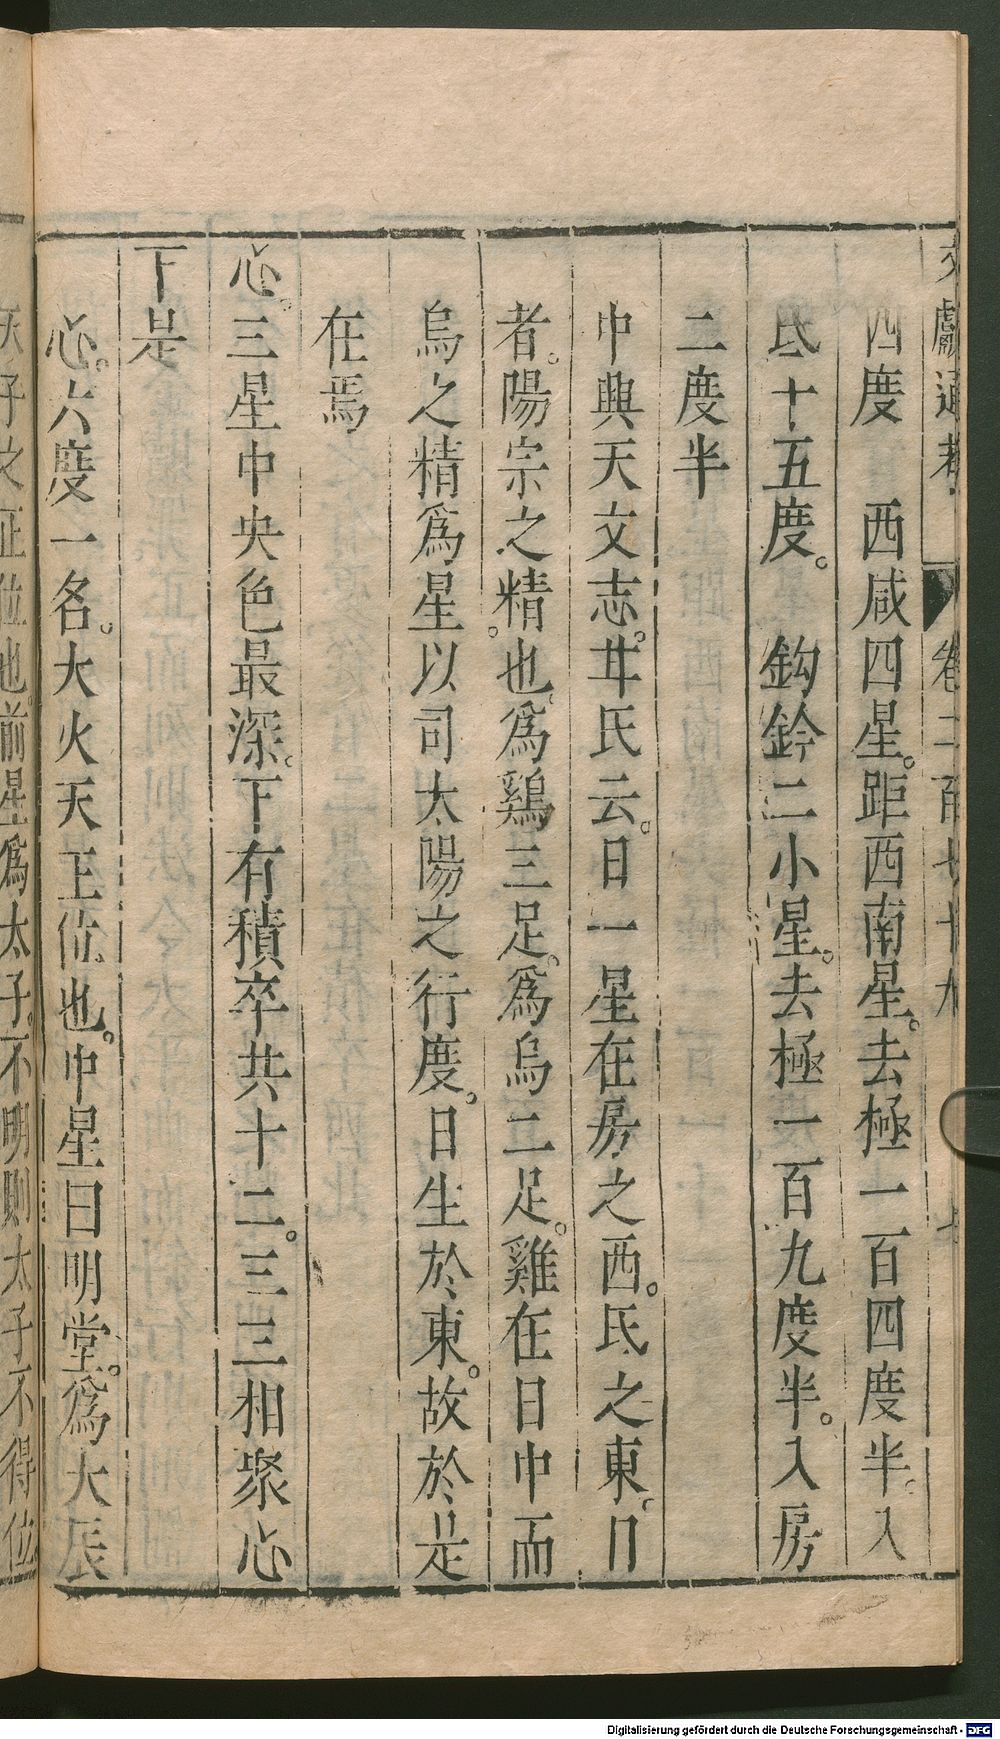 文獻通考 卷二百七十九 七
四度 西咸四星。距西南星。去極一百四度半。入
氐十五度。 鈎鈐二小星。去極一百九度半。入房
二度半
中興天文志。甘氏云。日一星在房之西。氐之東。日
者。陽宗之精也。爲鷄三足。爲烏二足。雞在日中而
烏之精爲星以司太陽之行度。日生於東。故於是
在焉
心。三星中央色最深。下有積卒共十二。三三相聚心
下是
心。六度一名。大火天王位也。中星曰明堂。爲大辰
天子之正位也。前星爲太子。不明則太子不得位
Digitalisierung gefördert durch die Deutsche Forschungsgemeinschaft - DFG